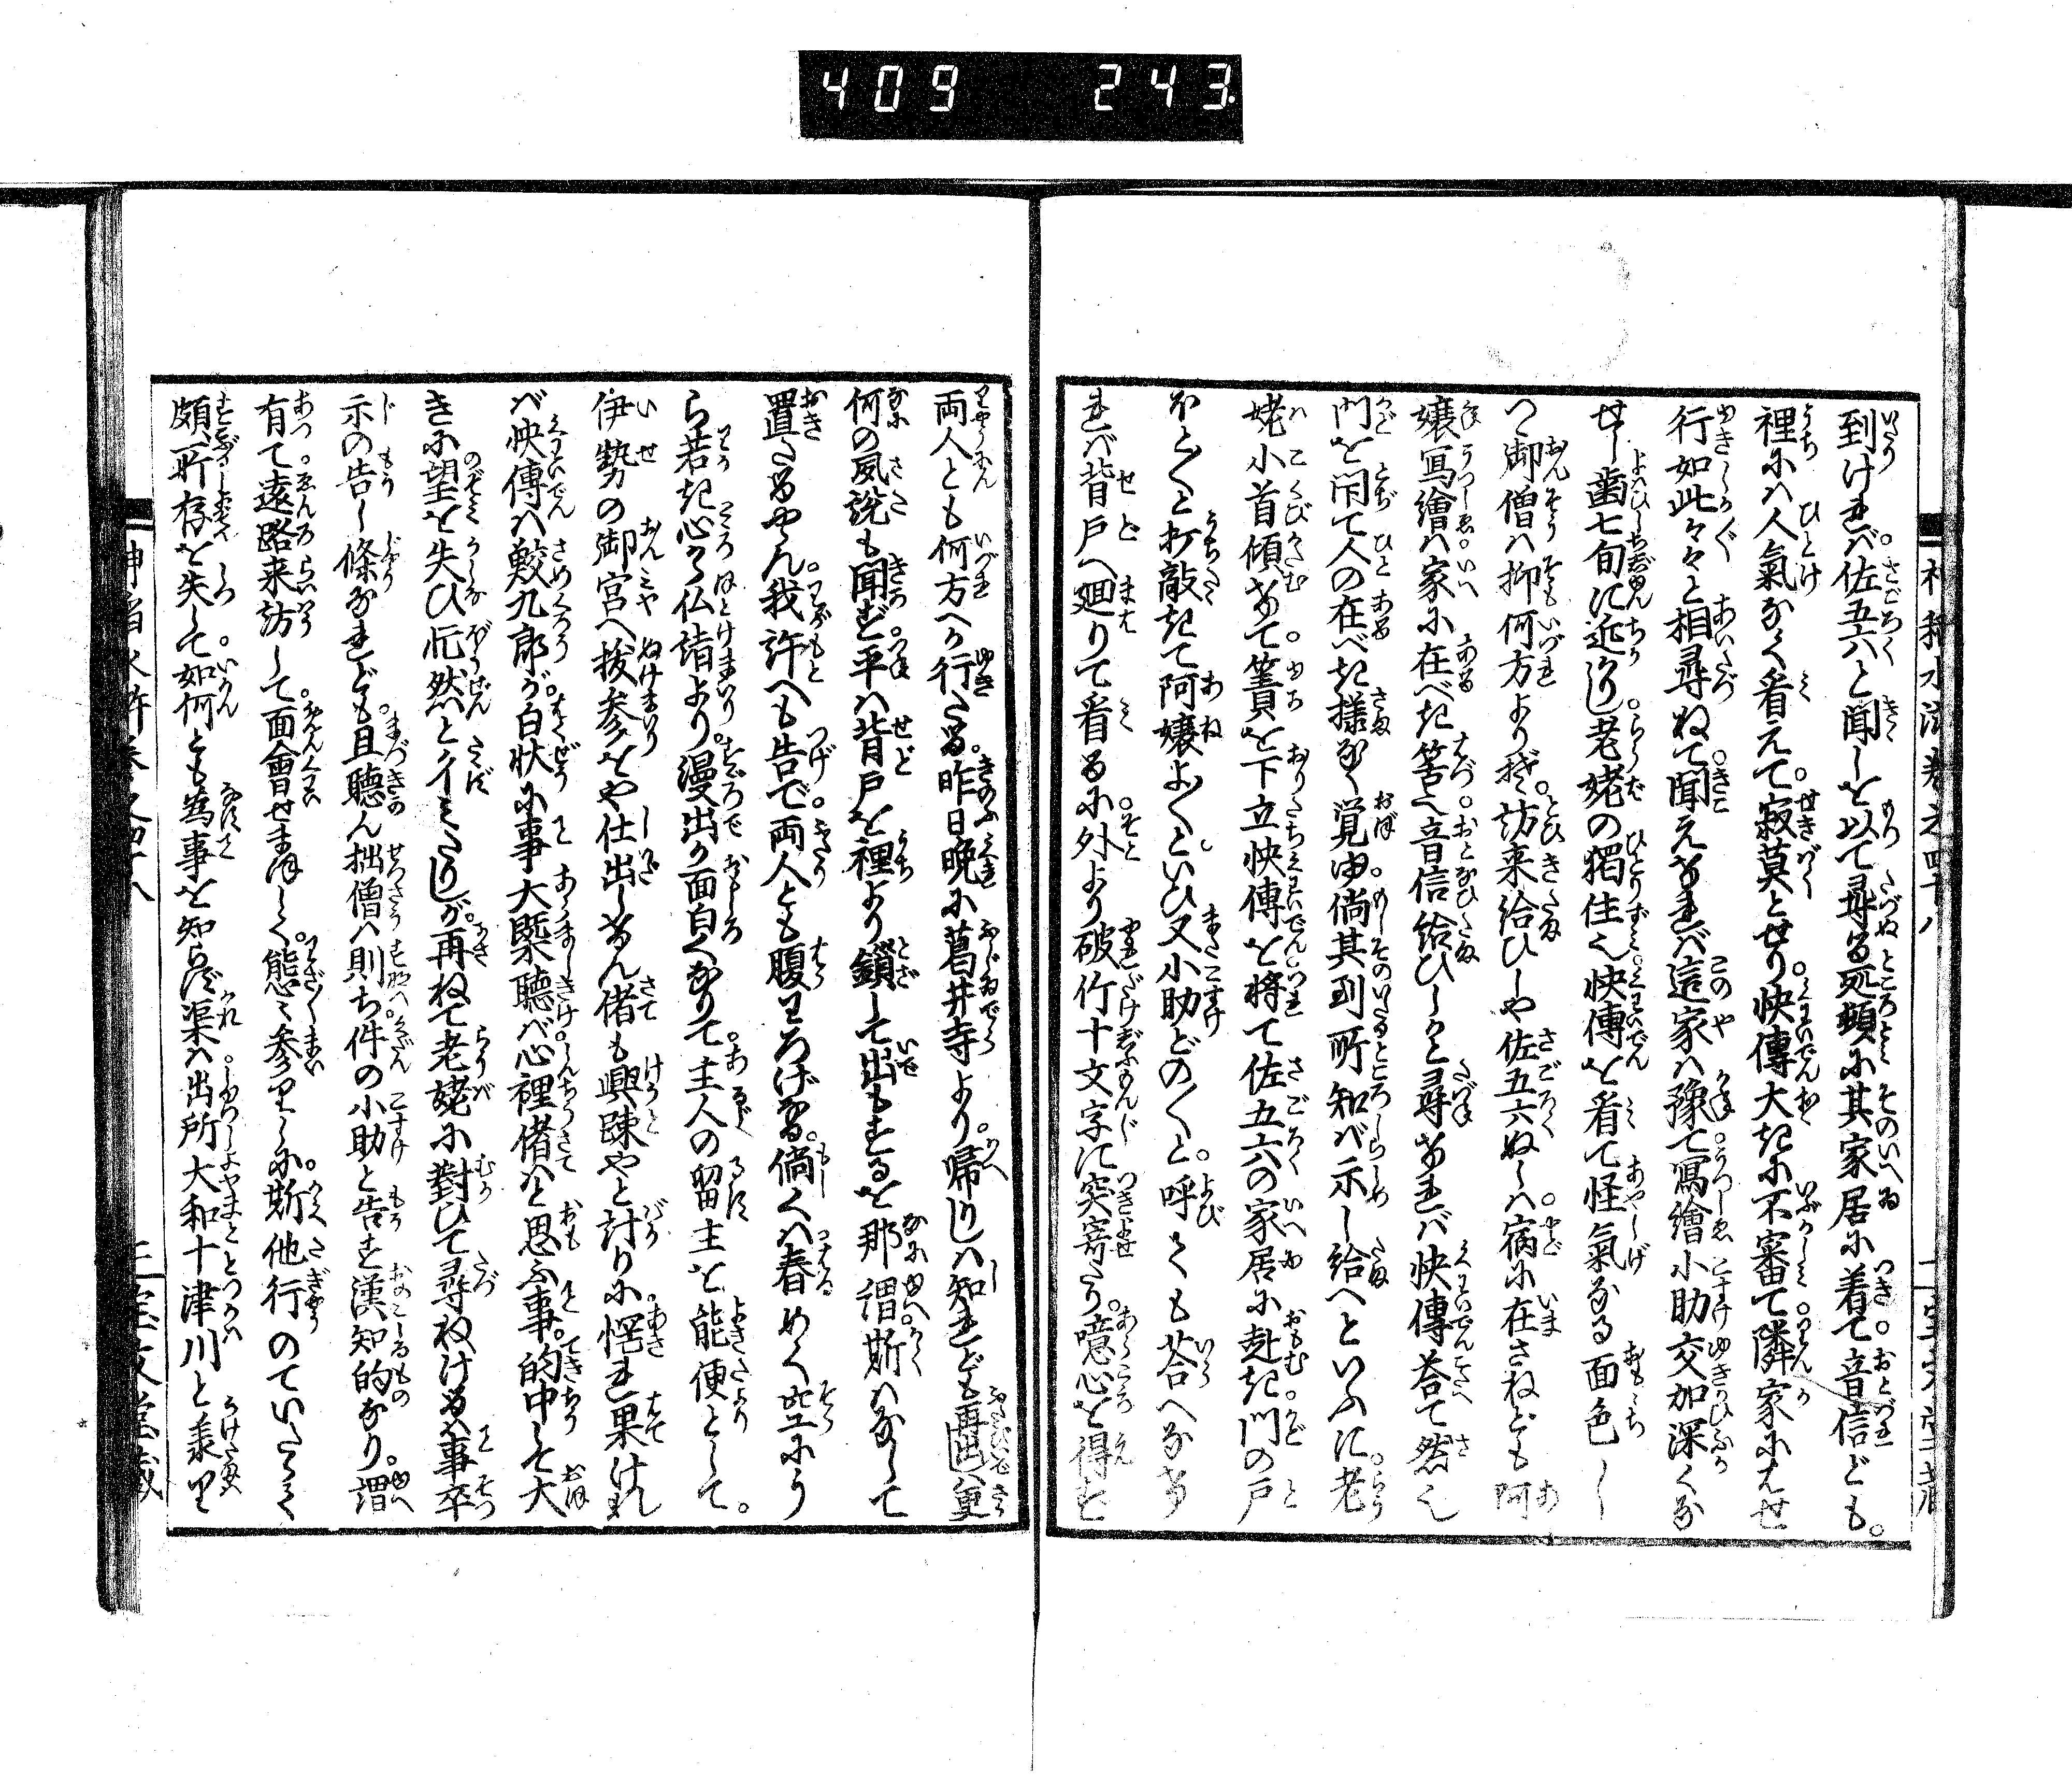 409 243
到けれバ佐五六と聞しを以て尋る程頓に其家居に着て音信ども。
裡にハ人氣なく看えて寂莫とせり快傳大きに不審て隣家にてせ
行如此々々と相尋ねて聞えけれバ這家ハ豫て寫繪小助交加深くな
せし齒七旬に近かりし老姥の獨住也快傳を看て怪氣なる面色し
つ御僧ハ抑何方より歟訪来給ひしや佐五六ぬしハ病に在さねども阿
嬢寫繪ハ家に在べき筈也音信給ひしかと尋けれバ快傳荅て然也
門を閇て人の在べき様なく覚ゆ倘其到所知バ示し給へといふに老
姥小首傾けて簀を下立快傳を將て佐五六の家居に赴き門の戸
ほとほとと打敲きて阿嬢よくといひ又小助どのくと呼さても荅へなけ
れバ背戸へ廻りて看るに外より破竹十文字に突寄たり噫心を得ず
両人とも何方へか行たる昨日晩に葛井寺より帰りしハ知れども再出ハ更
何の風説も聞ず平ハ背戸を裡より鎖して出もするを那謂斯ハなして
置たるやらん我許へも告で両人とも腹わろげなる倘くハ春めく空にう
ら若き心から仏詣より漫出か面白くなりて主人の留主を能便として
伊勢の御宮へ拔参をや仕出しけん偖も興疎やと討りに惘れ果けれ
バ快傳ハ鮫九郎が白状に事大槩聴バ心裡偖ハと思ふ事的中して大
きに望を失ひ忙然とイミたりしが再ねて老姥に對ひて尋ねけるハ事卒
示の告し條なれども且聴ん拙僧ハ則ち件の小助と告す漢知的なり謂
有て遠路来訪して面會せまほしく態々参りしに斯他行のていたらく
頗所存を失して如何とも為事を知らず渠ハ出所大和十津川と羕り